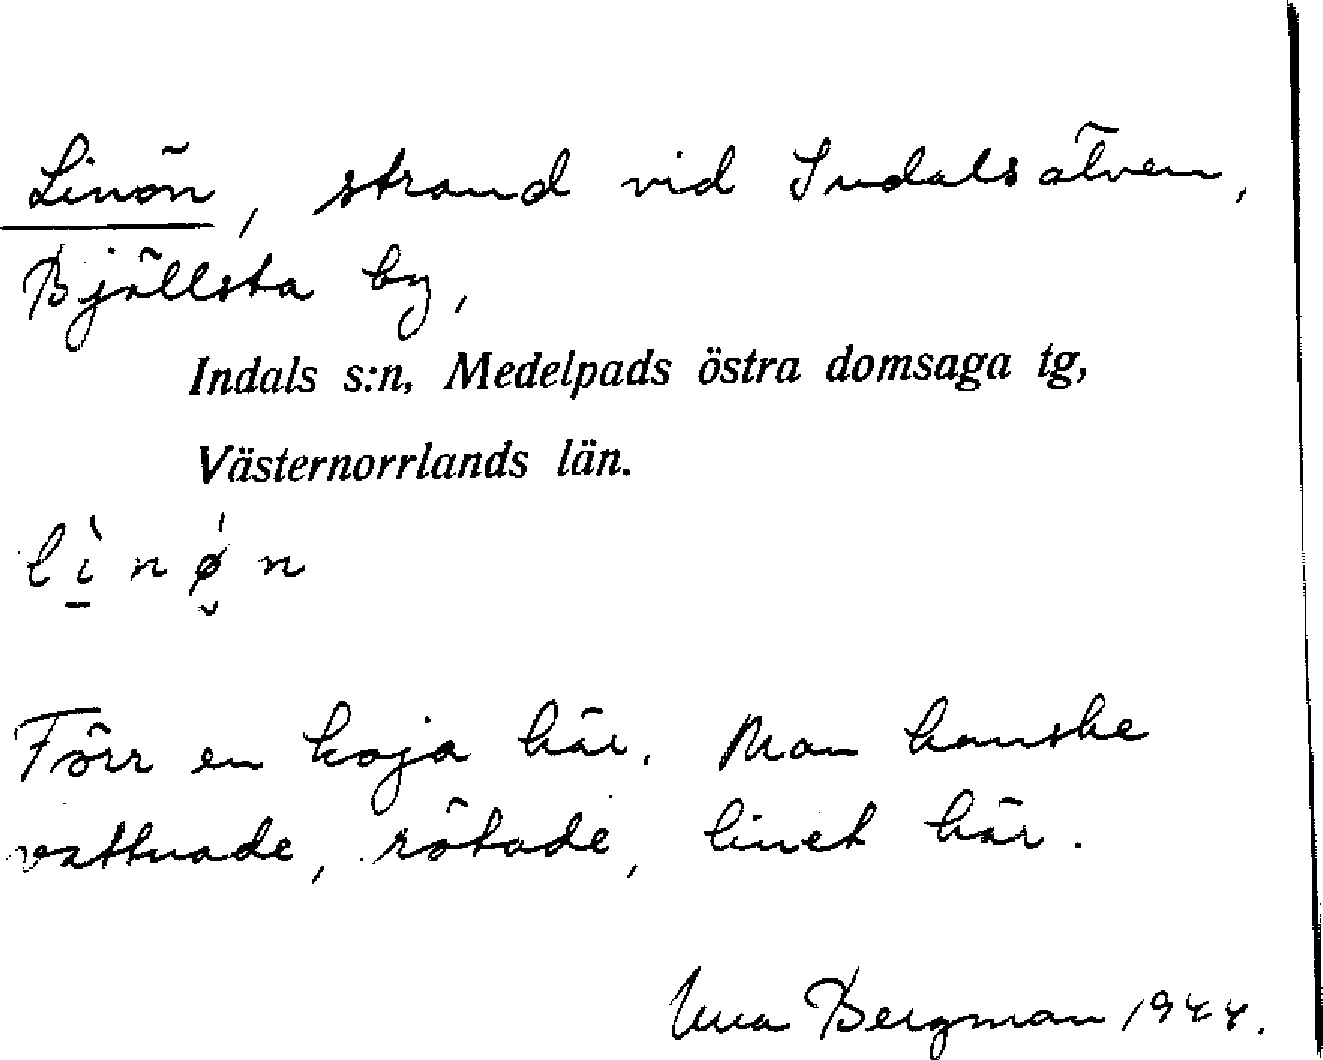 Linön, strand vid Indalsälven,
Bjällsta by,
Indals s:n, Medelpads östra domsaga tg,
Västernorrlands län.
lì̱nǿ̬n
Förr en koja här. Man kanske
vattnade, rötade, linet här.
Bergman 1944.